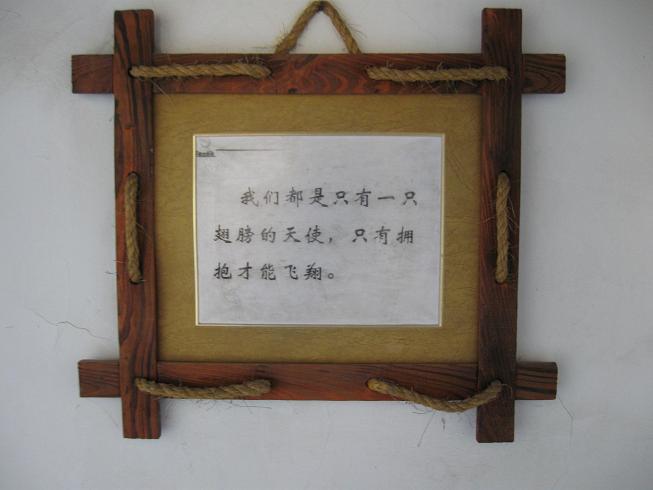 我们都是只有一只
翅膀的天使，只有拥
抱才能飞翔。